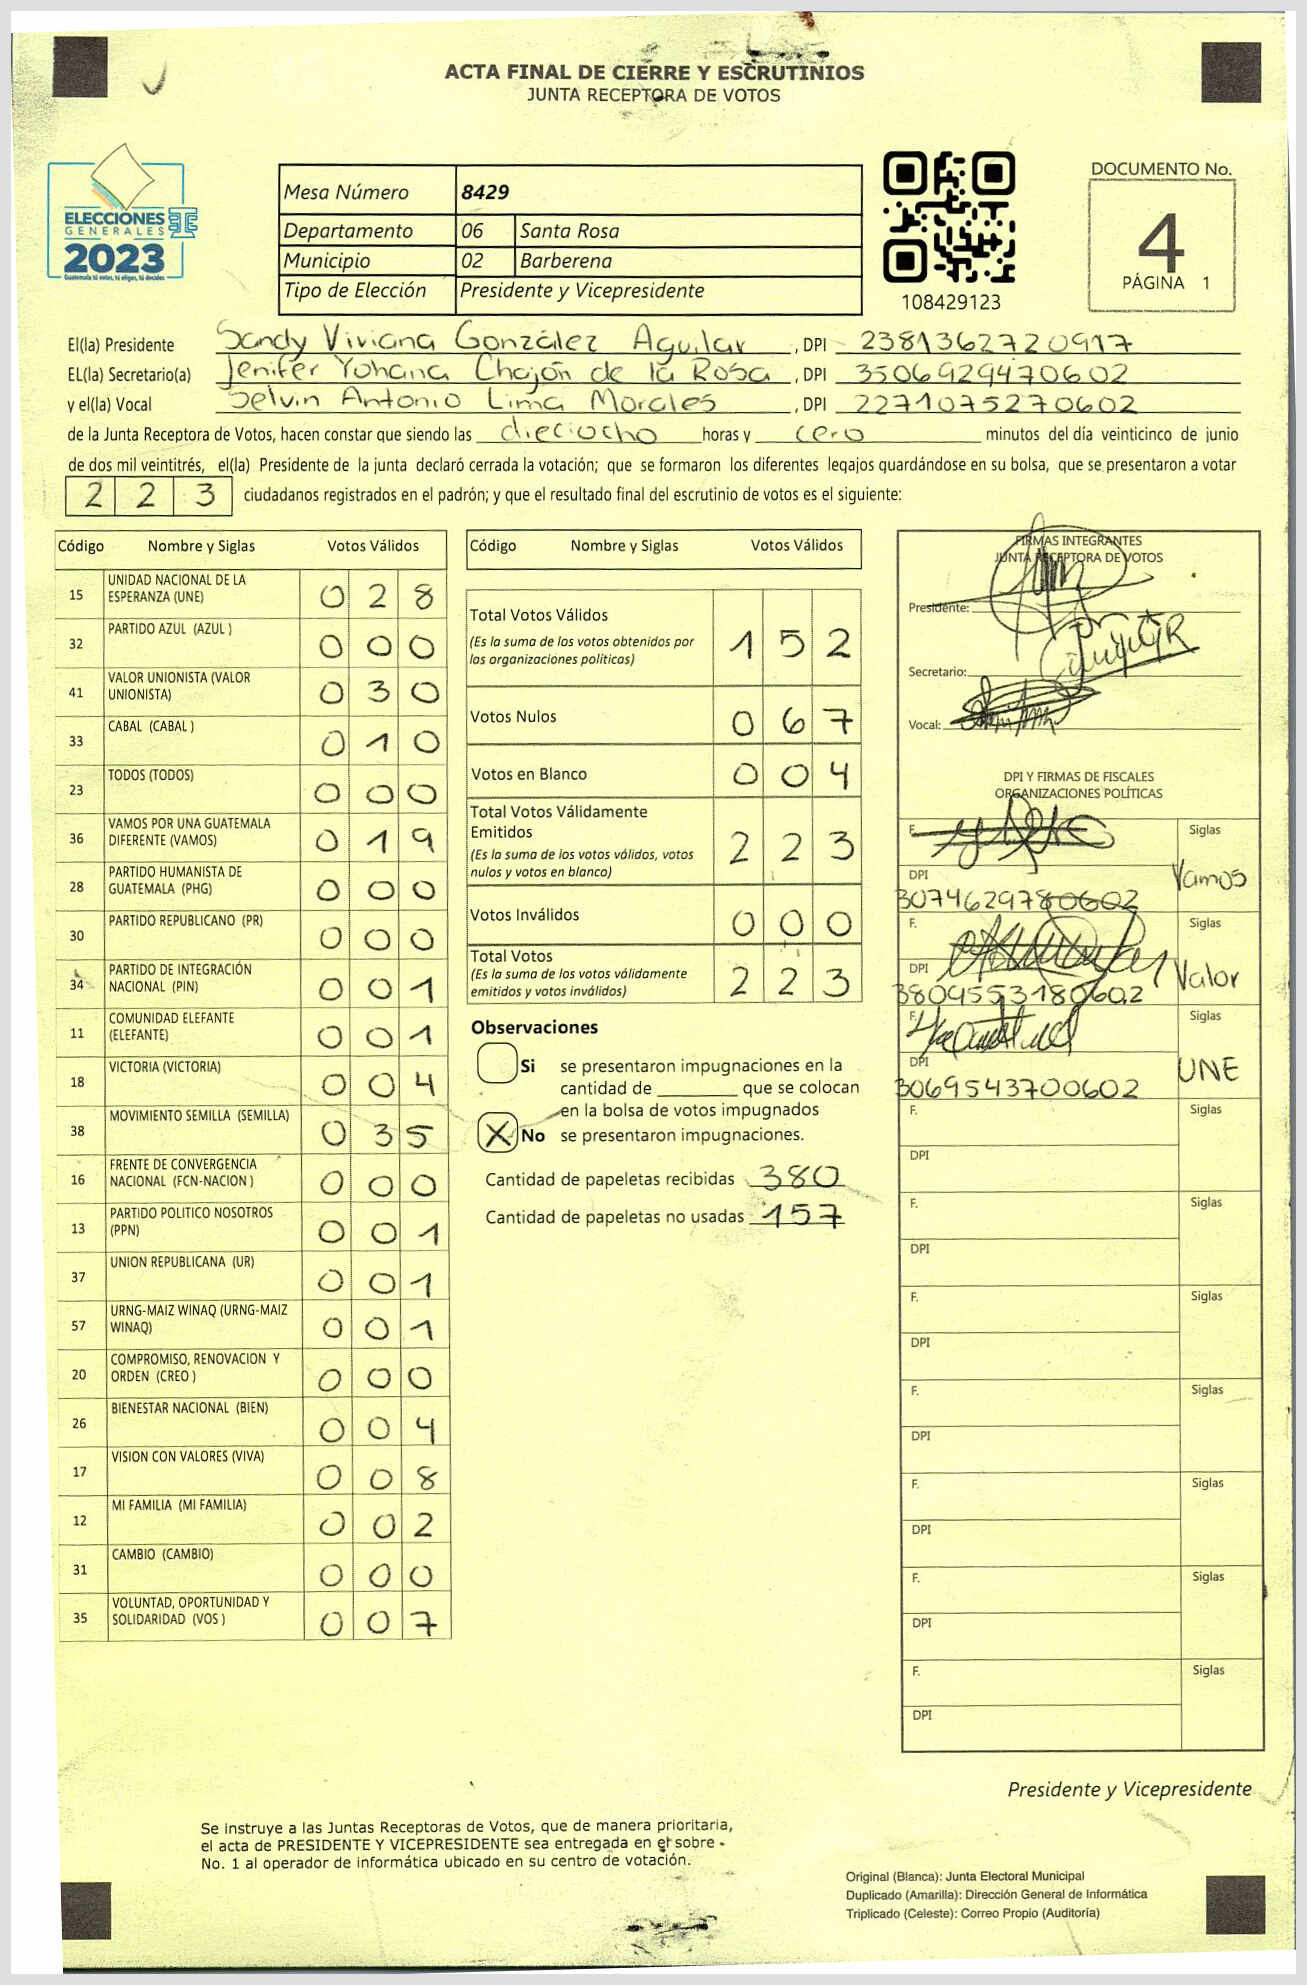 ACTA FINAL DE CIERRE Y ESCRUTINIOS
JUNTA RECEPTORA DE VOTOS
ELECCIONES
GENERALES
2023
Guatemala tú votas, tú eliges, tú decides
Mesa Número 8429
Departamento 06 Santa Rosa
Municipio 02 Barberena
Tipo de Elección Presidente y Vicepresidente
108429123
DOCUMENTO No.
4
PÁGINA 1
El(la) Presidente Sandy Viviana González Aguilar, DPI 2381362720917
EL(la) Secretario(a) Jenifer Yohana Chajón de la Rosa, DPI 3506929470602
y el(la) Vocal Selvin Antonio Lima Morales, DPI 2271075270602
de la Junta Receptora de Votos, hacen constar que siendo las dieciocho horas y cero minutos del día veinticinco de junio
de dos mil veintitrés, el(la) Presidente de la junta declaró cerrada la votación; que se formaron los diferentes legajos guardándose en su bolsa, que se presentaron a votar
2 2 3 ciudadanos registrados en el padrón; y que el resultado final del escrutinio de votos es el siguiente:
Código Nombre y Siglas Votos Válidos
15 UNIDAD NACIONAL DE LA ESPERANZA (UNE) 0 2 8
32 PARTIDO AZUL (AZUL ) 0 0 0
41 VALOR UNIONISTA (VALOR UNIONISTA) 0 3 0
33 CABAL (CABAL ) 0 1 0
23 TODOS (TODOS) 0 0 0
36 VAMOS POR UNA GUATEMALA DIFERENTE (VAMOS) 0 1 9
28 PARTIDO HUMANISTA DE GUATEMALA (PHG) 0 0 0
30 PARTIDO REPUBLICANO (PR) 0 0 0
34 PARTIDO DE INTEGRACIÓN NACIONAL (PIN) 0 0 1
11 COMUNIDAD ELEFANTE (ELEFANTE) 0 0 1
18 VICTORIA (VICTORIA) 0 0 4
38 MOVIMIENTO SEMILLA (SEMILLA) 0 3 5
16 FRENTE DE CONVERGENCIA NACIONAL (FCN-NACION ) 0 0 0
13 PARTIDO POLITICO NOSOTROS (PPN) 0 0 1
37 UNION REPUBLICANA (UR) 0 0 1
57 URNG-MAIZ WINAQ (URNG-MAIZ WINAQ) 0 0 1
20 COMPROMISO, RENOVACION Y ORDEN (CREO ) 0 0 0
26 BIENESTAR NACIONAL (BIEN) 0 0 4
17 VISION CON VALORES (VIVA) 0 0 8
12 MI FAMILIA (MI FAMILIA) 0 0 2
31 CAMBIO (CAMBIO) 0 0 0
35 VOLUNTAD, OPORTUNIDAD Y SOLIDARIDAD (VOS ) 0 0 7
Código Nombre y Siglas Votos Válidos
Total Votos Válidos 1 5 2
(Es la suma de los votos obtenidos por
las organizaciones políticas)
Votos Nulos 0 6 7
Votos en Blanco 0 0 4
Total Votos Válidamente
Emitidos 2 2 3
(Es la suma de los votos válidos, votos
nulos y votos en blanco)
Votos Inválidos 0 0 0
Total Votos 2 2 3
(Es la suma de los votos válidamente
emitidos y votos inválidos)
Observaciones
Si se presentaron impugnaciones en la
cantidad de ________ que se colocan
en la bolsa de votos impugnados
X No se presentaron impugnaciones.
Cantidad de papeletas recibidas 380
Cantidad de papeletas no usadas 157
FIRMAS INTEGRANTES
JUNTA RECEPTORA DE VOTOS
Presidente:
Secretario:
Vocal:
DPI Y FIRMAS DE FISCALES
ORGANIZACIONES POLÍTICAS
F. Siglas
DPI Vamos
3074629780602
F. Siglas
DPI Valor
3809553180602
F. Siglas
DPI UNE
3069543700602
F. Siglas
DPI
F. Siglas
DPI
F. Siglas
DPI
F. Siglas
DPI
F. Siglas
DPI
F. Siglas
DPI
F. Siglas
DPI
Presidente y Vicepresidente
Se instruye a las Juntas Receptoras de Votos, que de manera prioritaria,
el acta de PRESIDENTE Y VICEPRESIDENTE sea entregada en el sobre
No. 1 al operador de informática ubicado en su centro de votación.
Original (Blanca): Junta Electoral Municipal
Duplicado (Amarilla): Dirección General de Informática
Triplicado (Celeste): Correo Propio (Auditoría)